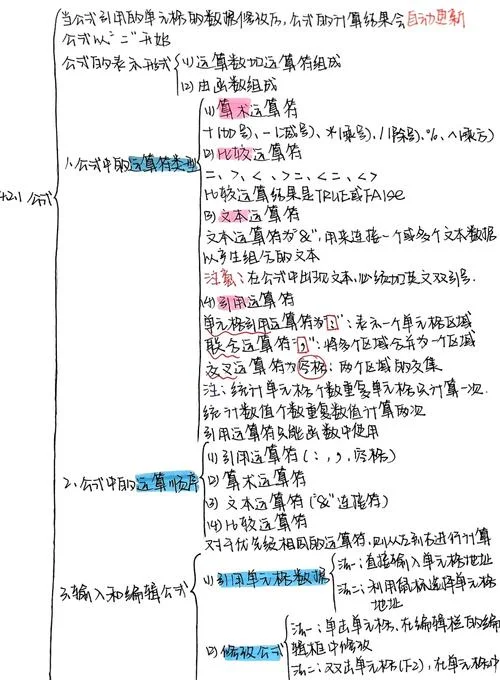 当公式引用的单元格的数据修改后,公式的计算结果会自动更新
公式以"="开始
公式的表示形式
(1)运算数加运算符组成
(2)由函数组成
4.2.1 公式
1.公式中的运算符类型
(1)算术运算符
+(加号)、-(减号)、*(乘号)、/(除号)、%、^(乘方)
(2)比较运算符
=、>、<、>=、<=、<>
比较运算结果是TRUE或FAlSe
(3)文本运算符
文本运算符为"&",用来连接一个或多个文本数据
以产生组合的文本
注意:在公式中出现文本,必须加英文双引号.
(4)引用运算符
单元格引用运算符为":":表示一个单元格区域
联合运算符",":将多个区域合并为一个区域
交叉运算符为空格:两个区域的交集
注:统计单元格个数重复单元格只计算一次
统计数值个数重复数值计算两次
引用运算符只能函数中使用
2.公式中的运算顺序
(1)引用运算符(:,,,空格)
(2)算术运算符
(3)文本运算符("&"连接符)
(4)比较运算符
对于优先级相同的运算符,则从左到右进行计算
3.输入和编辑公式
(1)引用单元格数据
法一:直接输入单元格地址
法二:利用鼠标选择单元格
地址
(2)修改公式
法一:单击单元格,在编辑栏的编
辑框中修改
法二:双击单元格(F2),在单元格中